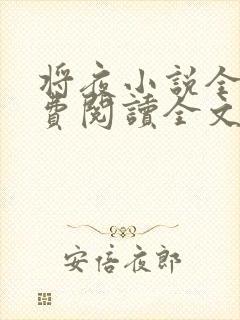 将夜小说全
費閱讀全文
安倍夜郎